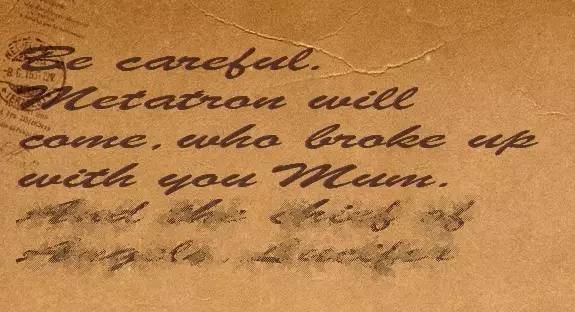 Be careful.
Metatron will
come. who broke up
with you Mum.
And the chief of
Angels. Lucifer